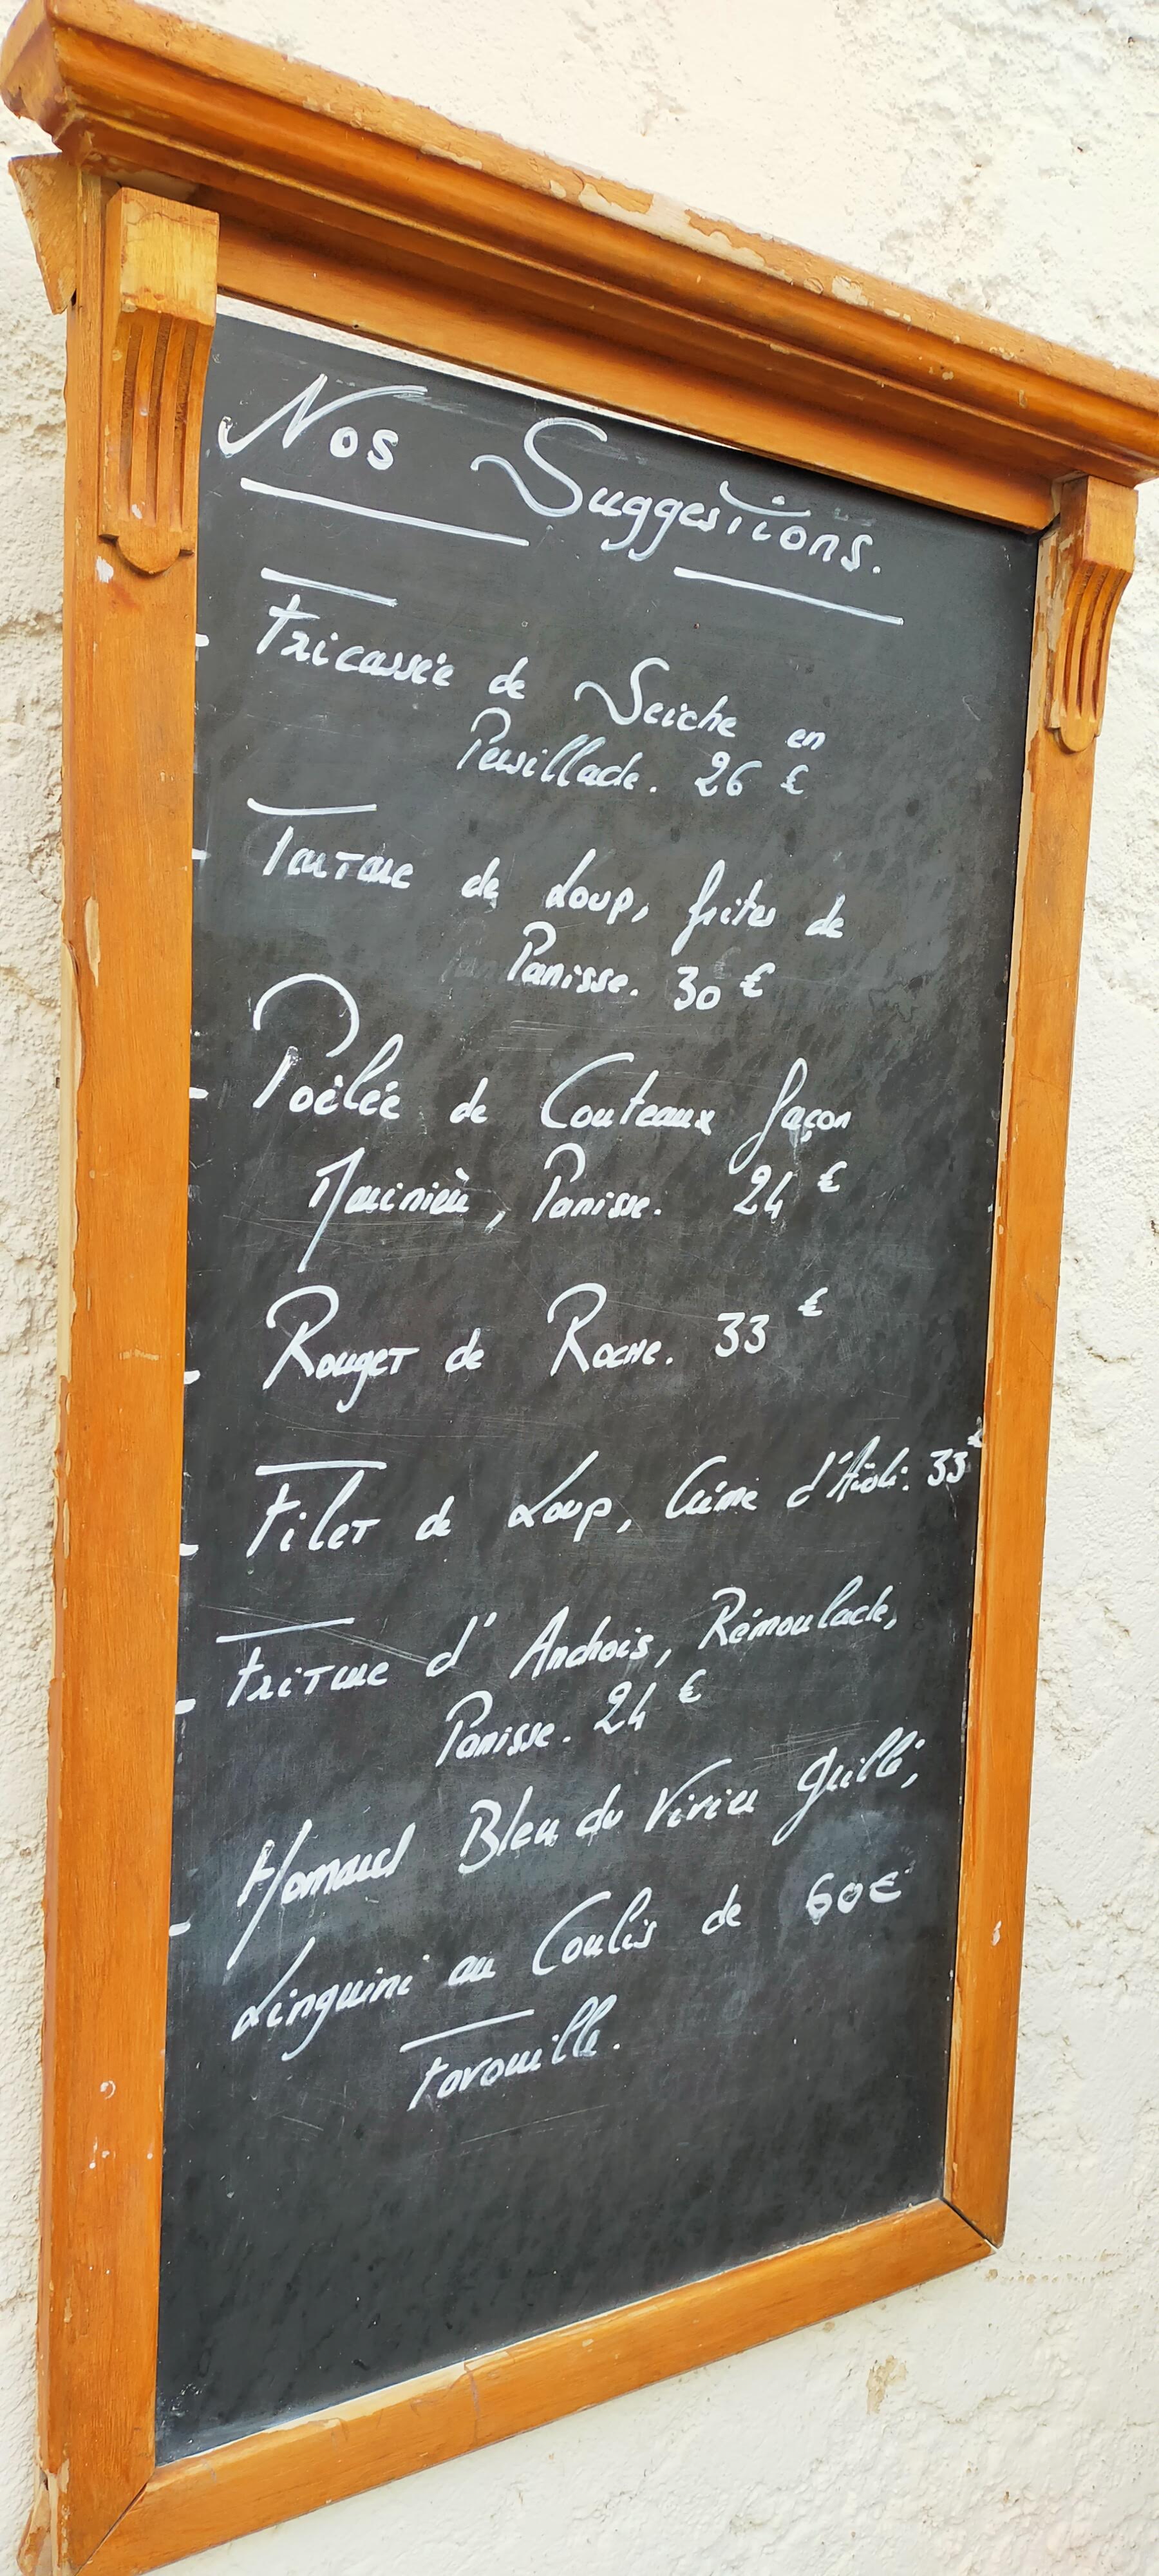 Nos Suggestions.
- Fricassée de Seiche en
Persillade. 26 €
- Tartare de Loup, frites de
Panisse. 30 €
- Poêlée de Couteaux façon
Marinière, Panisse. 24 €
- Rouget de Roche. 33 €
- Filet de Loup, Crème d'Aïoli. 33 €
- Friture d'Anchois, Rémoulade,
Panisse. 24 €
- Homard Bleu du Vivier Grillé,
Linguini au Coulis de 60€
Favouille.